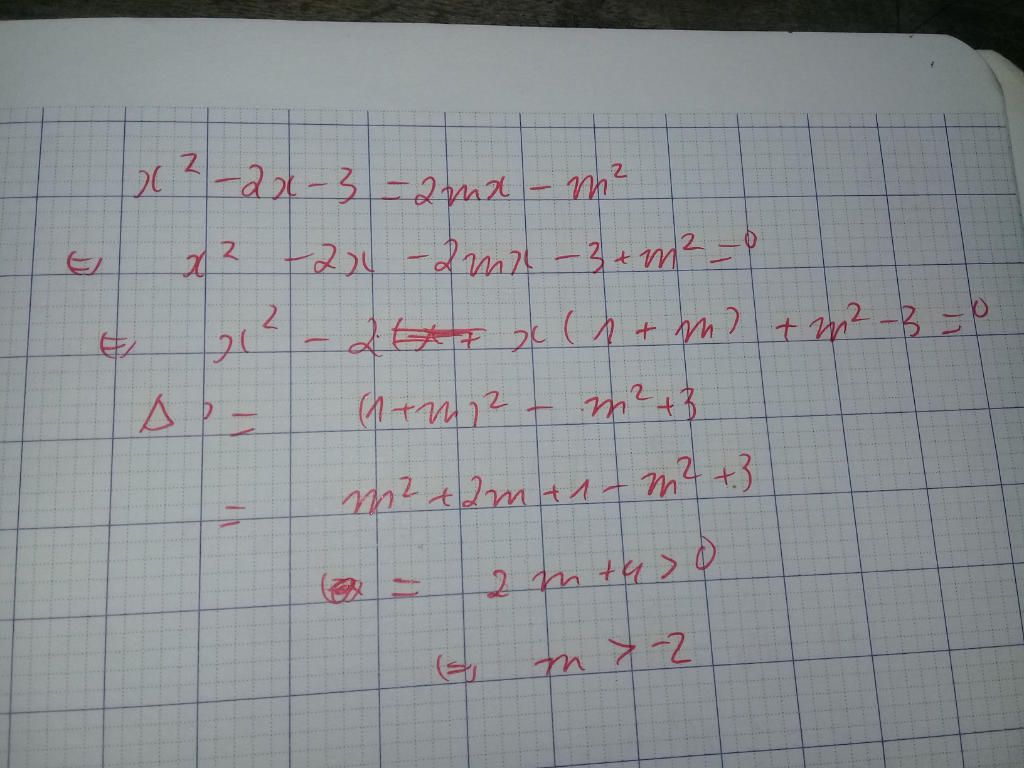 x² - 2x - 3 = 2mx - m²
⇔ x² - 2x - 2mx - 3 + m² = 0
⇔ x² - 2 x(1 + m) + m² - 3 = 0
Δ' = (1+m)² - m² + 3
= m² + 2m + 1 - m² + 3
= 2m + 4 > 0
⇔ m > -2